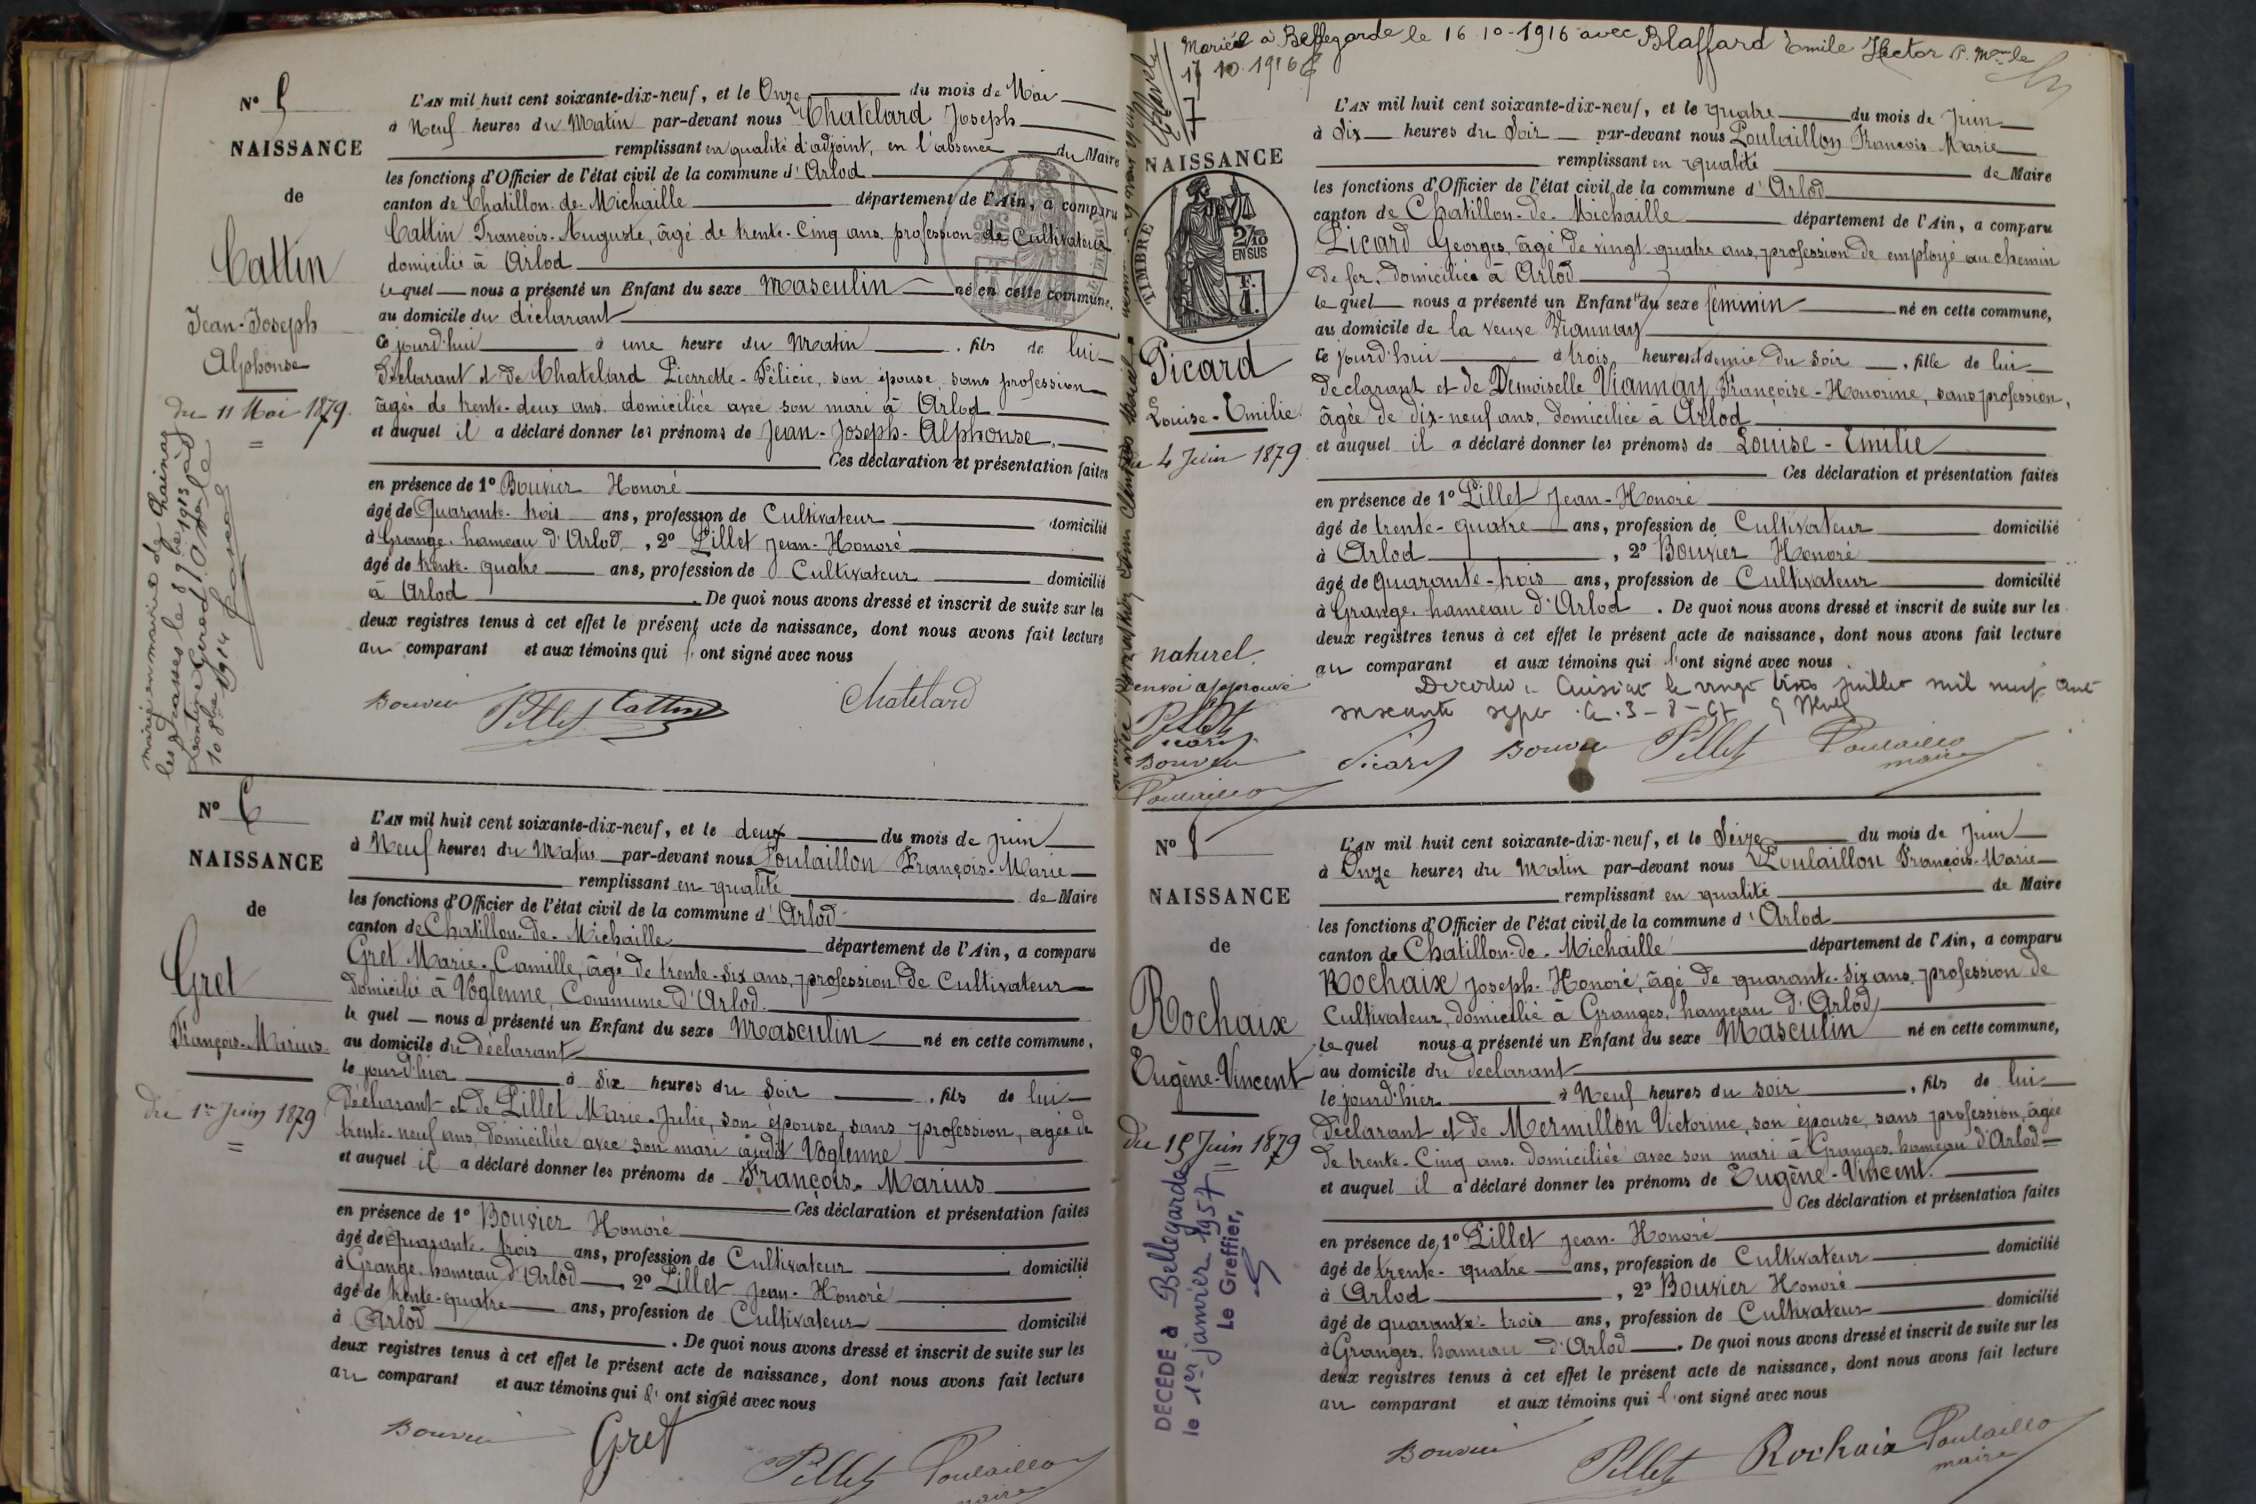 N° 5
NAISSANCE
de
Cattin
Jean-Joseph
Alphonse
du 11 Mai 1879.
L'AN mil huit cent soixante-dix-neuf, et le Onze du mois de Mai
à Neuf heures du Matin par-devant nous Chatelard Joseph
remplissant en qualité d'adjoint, en l'absence du Maire
les fonctions d'Officier de l'état civil de la commune d'Arlod
canton de Chatillon-de-Michaille département de l'Ain, a comparu
Cattin François-Auguste, âgé de trente-Cinq ans, profession de Cultivateur
domicilié à Arlod
le quel nous a présenté un Enfant du sexe Masculin né en cette commune,
au domicile du déclarant
Ce jourd'hui à une heure du Matin, fils de lui
Déclarant et de Chatelard Pierrette-Félicie, son épouse, sans profession
âgée de trente-deux ans, domiciliée avec son mari à Arlod
et auquel il a déclaré donner les prénoms de Jean-Joseph-Alphonse.
Ces déclaration et présentation faites
en présence de 1° Bouvier Honoré
âgé de Quarante-trois ans, profession de Cultivateur domicilié
à Grange, hameau d'Arlod, 2° Pillet Jean-Honoré
âgé de trente-quatre ans, profession de Cultivateur domicilié
à Arlod. De quoi nous avons dressé et inscrit de suite sur les
deux registres tenus à cet effet le présent acte de naissance, dont nous avons fait lecture
au comparant et aux témoins qui l'ont signé avec nous
Bouvier Pillet Cattin Chatelard
N° 6
NAISSANCE
de
Gret
François-Marius
du 1er Juin 1879
L'AN mil huit cent soixante-dix-neuf, et le deux du mois de Juin
à Neuf heures du Matin par-devant nous Poulaillon François-Marie
remplissant en qualité de Maire
les fonctions d'Officier de l'état civil de la commune d'Arlod
canton de Chatillon-de-Michaille département de l'Ain, a comparu
Gret Marie-Camille, âgé de trente-six ans, profession de Cultivateur
domicilié à Voglenne, Commune d'Arlod.
le quel nous a présenté un Enfant du sexe Masculin né en cette commune,
au domicile du déclarant
le jourd'hier à Six heures du Soir, fils de lui
Déclarant et de Pillet Marie-Julie, son épouse, sans profession, âgée de
trente-neuf ans, domiciliée avec son mari audit Voglenne
et auquel il a déclaré donner les prénoms de François-Marius
Ces déclaration et présentation faites
en présence de 1° Bouvier Honoré
âgé de Quarante-trois ans, profession de Cultivateur domicilié
à Grange, hameau d'Arlod, 2° Pillet Jean-Honoré
âgé de trente-quatre ans, profession de Cultivateur domicilié
à Arlod. De quoi nous avons dressé et inscrit de suite sur les
deux registres tenus à cet effet le présent acte de naissance, dont nous avons fait lecture
au comparant et aux témoins qui l'ont signé avec nous
Bouvier Gret Pillet Poulaillon
maire
Mariée à Bellegarde le 16-10-1916 avec Blaffard Emile Hector
17 10 1916
7
NAISSANCE
TIMBRE
2/10
EN SUS
F.
1.
Picard
Louise-Emilie
du 4 Juin 1879
naturel.
renvoi approuvé
Pillet
Picard
Bouvier
Poulaillon
L'AN mil huit cent soixante-dix-neuf, et le quatre du mois de Juin
à Six heures du Soir par-devant nous Poulaillon François-Marie
remplissant en qualité de Maire
les fonctions d'Officier de l'état civil de la commune d'Arlod
canton de Chatillon-de-Michaille département de l'Ain, a comparu
Picard Georges, âgé de vingt-quatre ans, profession de employé au chemin
de fer, domicilié à Arlod
le quel nous a présenté un Enfant du sexe féminin né en cette commune,
au domicile de la veuve Viannay
Ce jourd'hui à trois heures et demie du Soir, fille de lui
déclarant et de Demoiselle Viannay Françoise-Honorine, sans profession,
âgée de dix-neuf ans, domiciliée à Arlod
et auquel il a déclaré donner les prénoms de Louise-Emilie
Ces déclaration et présentation faites
en présence de 1° Pillet Jean-Honoré
âgé de trente-quatre ans, profession de Cultivateur domicilié
à Arlod, 2° Bouvier Honoré
âgé de quarante-trois ans, profession de Cultivateur domicilié
à Grange, hameau d'Arlod. De quoi nous avons dressé et inscrit de suite sur les
deux registres tenus à cet effet le présent acte de naissance, dont nous avons fait lecture
au comparant et aux témoins qui l'ont signé avec nous
juillet mil neuf cent
Picard Bouvier Pillet Poulaillon
maire
N° 8
NAISSANCE
de
Rochaix
Eugène-Vincent
du 15 Juin 1879
DECEDE à Bellegarde
le 1er janvier 1957
Le Greffier,
L'AN mil huit cent soixante-dix-neuf, et le Seize du mois de Juin
à Onze heures du Matin par-devant nous Poulaillon François-Marie
remplissant en qualité de Maire
les fonctions d'Officier de l'état civil de la commune d'Arlod
canton de Chatillon-de-Michaille département de l'Ain, a comparu
Rochaix Joseph-Honoré, âgé de quarante-six ans, profession de
Cultivateur, domicilié à Granges, hameau d'Arlod,
le quel nous a présenté un Enfant du sexe Masculin né en cette commune,
au domicile du déclarant
le jourd'hier à Neuf heures du soir, fils de lui
déclarant et de Mermillon Victorine, son épouse, sans profession, âgée
de trente-Cinq ans, domiciliée avec son mari à Granges, hameau d'Arlod
et auquel il a déclaré donner les prénoms de Eugène-Vincent.
Ces déclaration et présentation faites
en présence de 1° Pillet Jean-Honoré
âgé de trente-quatre ans, profession de Cultivateur domicilié
à Arlod, 2° Bouvier Honoré
âgé de quarante-trois ans, profession de Cultivateur domicilié
à Granges, hameau d'Arlod. De quoi nous avons dressé et inscrit de suite sur les
deux registres tenus à cet effet le présent acte de naissance, dont nous avons fait lecture
au comparant et aux témoins qui l'ont signé avec nous
Bouvier Pillet Rochaix Poulaillon
maire